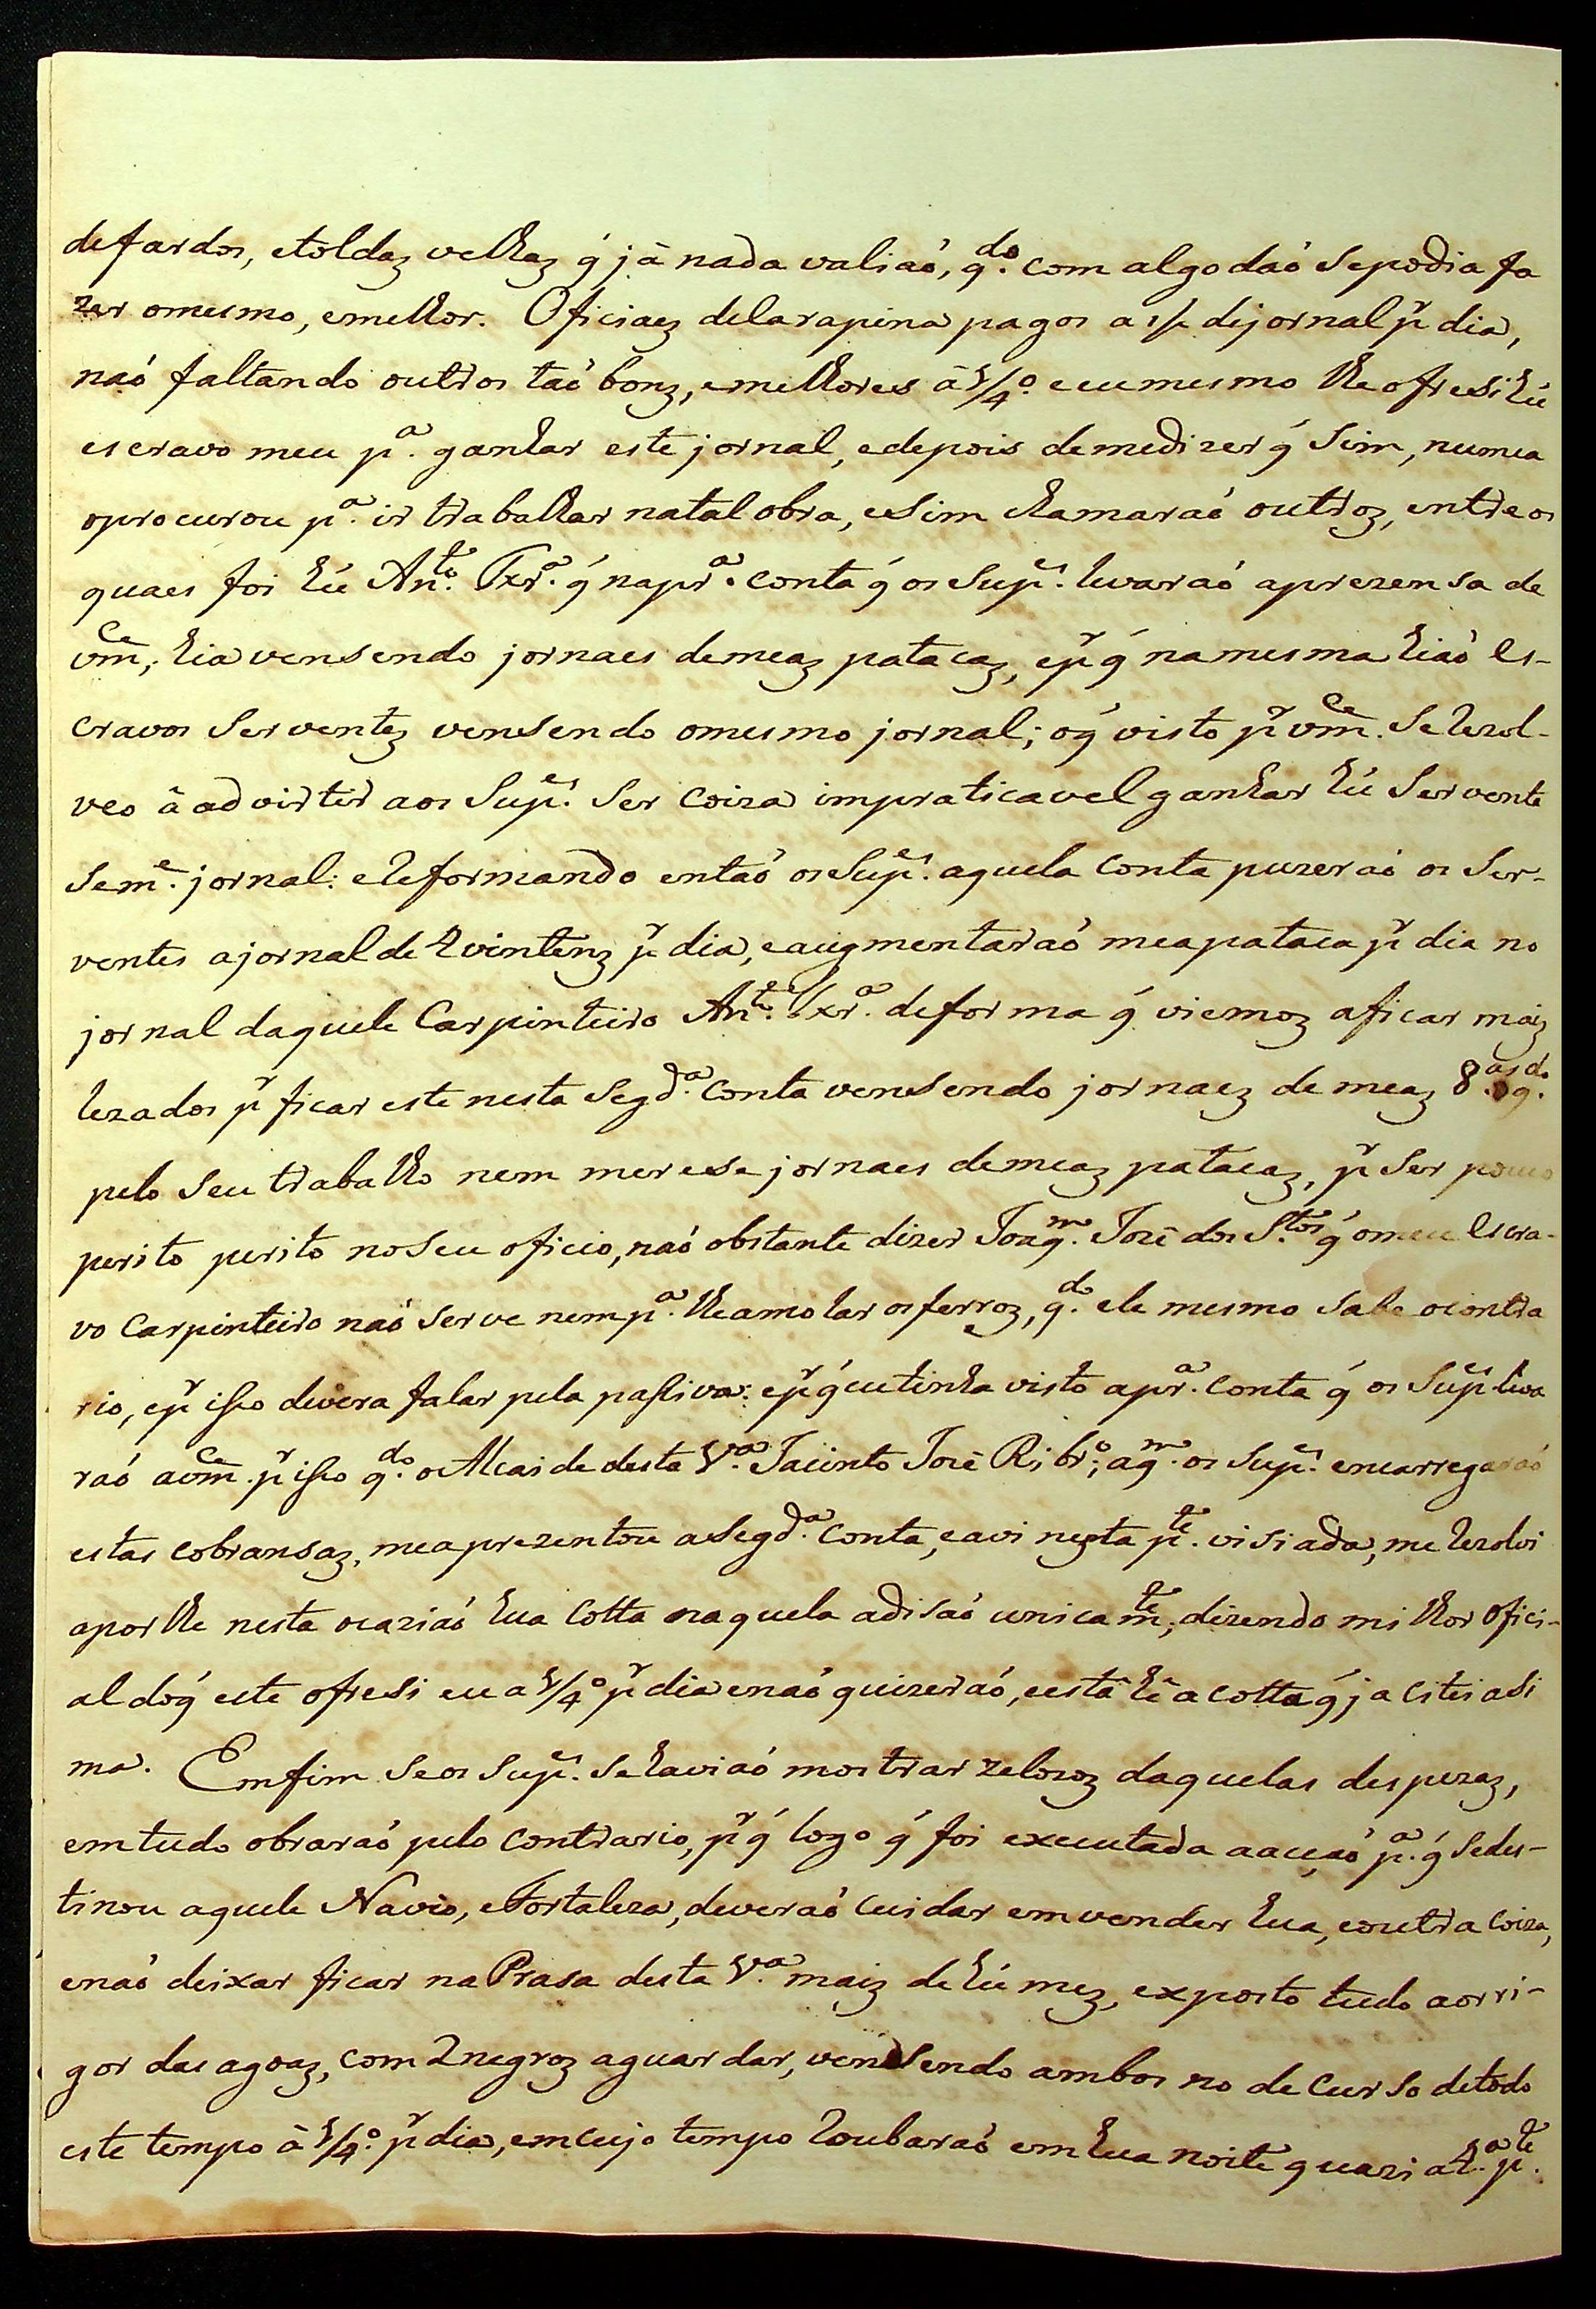 defardos, etoldaz velhaz q̃ jà nada valiaó, q.do com algodaó sepodia fa
zer omesmo, emelhor. Oficiaez deCarapina pagos a ½ dejornal pr dia,
naó faltando outros taó bonz, emelhores â ¼.o eeumesmo lhe ofresi hũ
escravo meu p.a ganhar este jornal, edepois demedizer q̃ sim, nunca
oprocurou p.a ir trabalhar natal obra, esim chamaraó outroz, entre os
quaes foi hũ Ant.e Txr.a q̃ napr.a conta q̃ os Sup.es levaraó aprezensa de
vm.ce, hia vensendo jornaes demeaz patacaz, epr q̃ namesma hiaó es-
cravos serventez vensendo omesmo jornal; oq̃ visto pr vm.ce se rezol-
veo â advirtir aos Sup.es ser coiza impraticavel ganhar hũ servente
sem.e jornal: ereformando entaó os Sup.es aquela conta puzeraó os ser-
ventes ajornal de 4 vintenz pr dia, eaugmentaraó meapataca pr dia no
jornal daquele Carpinteiro Ant.e Txr.a deforma q̃ viemoz aficar maiz
lezados pr ficar este nesta segd.a conta vensendo jornaez de meaz 8.as q.do
pelo seu trabalho nem merese jornaes demeaz patacaz, pr ser pouco
perito perito noseu oficio, naó obstante dizer Joaq.m José dos S.tos q̃ omeu escra-
vo Carpinteiro naó serve nem p.a lhe amolar osferroz, q.do ele mesmo sabe ocontra
rio, epr isso devera falar pela passiva: epr q̃ eutinha visto apr.a conta q̃ os Sup.es leva
raó avm.ce pr isso q.do oAlcaide desta V.a Jacinto José Ribr.o, aq.m os Sup.es encarregaraó
estas cobransaz, meaprezentou asegd.a conta, eavi nesta p.te visiada, me rezolvi
aporlhe nesta ocaziaó hua Cotta naquela adisaó unicam.te, dizendo milhor ofici-
al doq̃ este ofresi eu a ¼.o pr dia enaó quizeraó, eesta hê a cotta q̃ ja citei asi
ma. Emfim seos Sup.es sehaviaó mostrar zelozoz daquelas despezaz,
emtudo obraraó pelo contrario, pr q̃ logo q̃ foi executada aacçaó p.a q̃ sedes-
tinou aquele Navio, eFortaleza, deveraó cuidar emvender hua, eoutra coiza,
enaó deixar ficar naPrasa desta V.a maiz de hũ mez, exposto tudo aorri-
gor das agoaz, com 2 negroz aguardar, vensendo ambos no decurso detodo
este tempo â ¼.o pr dia, emcujo tempo roubaraó emhua noite quazi a4.a p.te